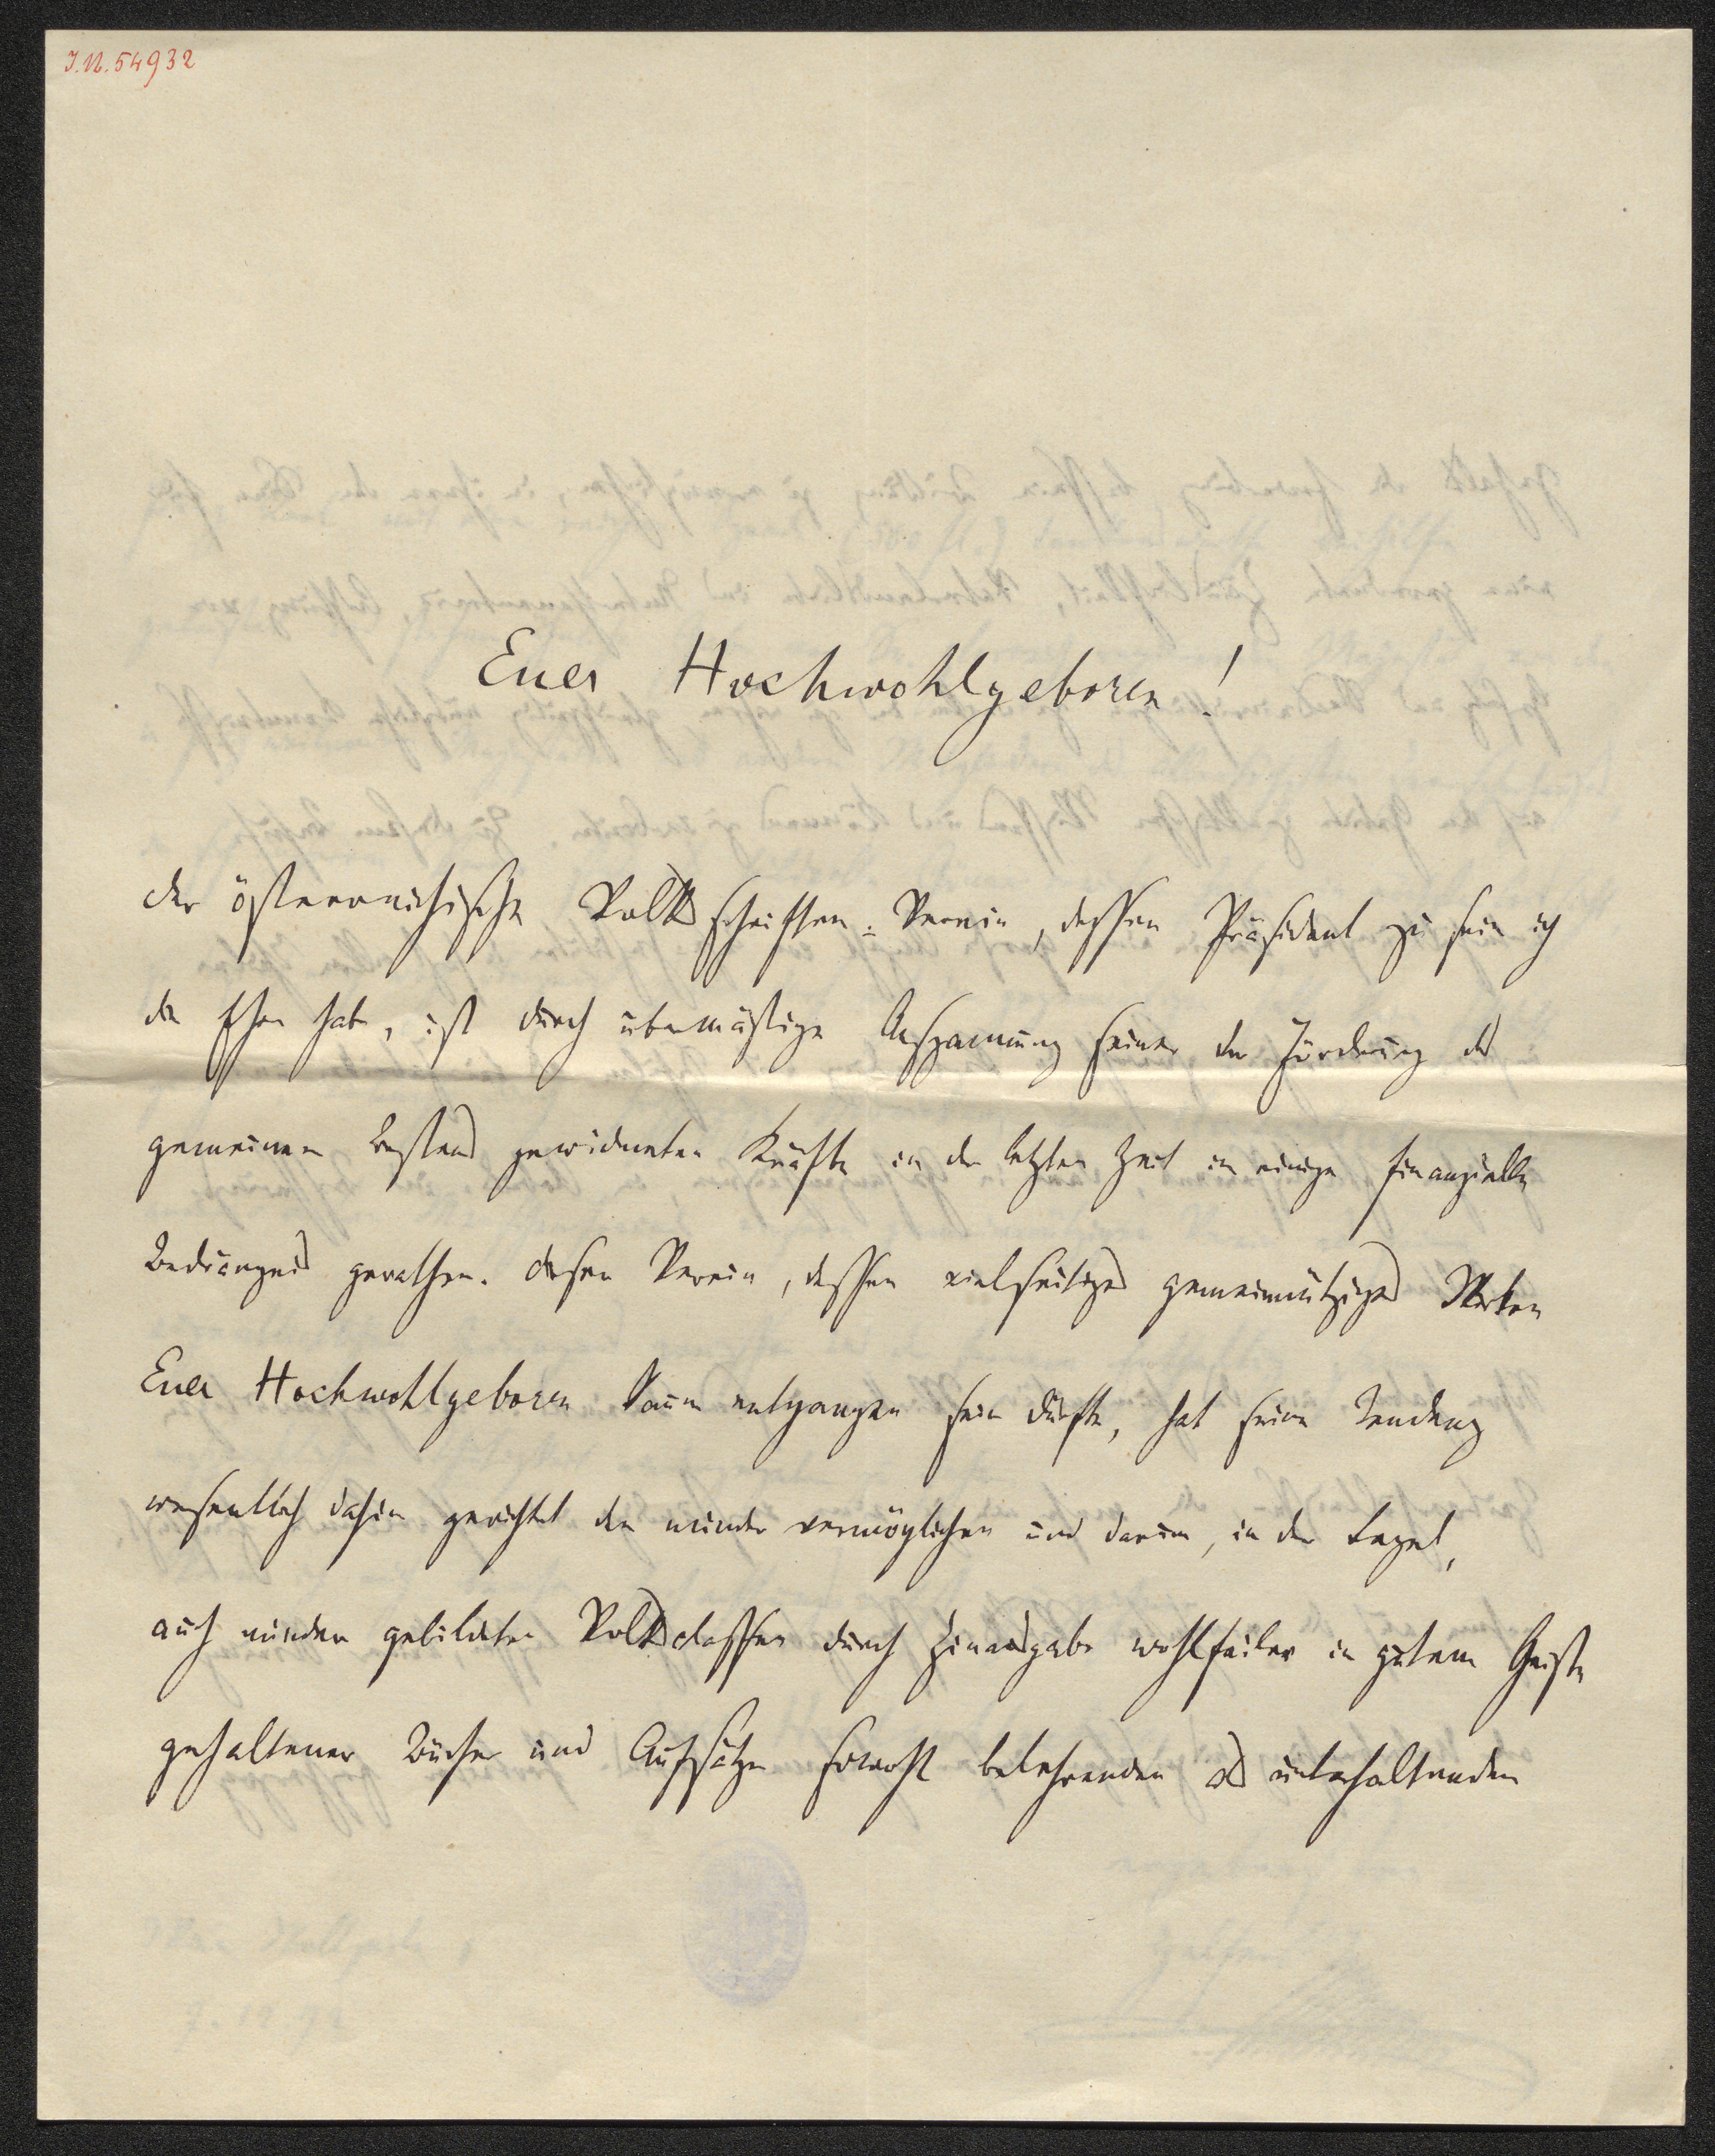 J.N. 54932
Euer Hochwohlgeboren!
der österreichische Volksschriften-Verein, dessen Präsident zu sein ich
die Ehre habe, ist durch übermäßige Anspannung seiner der Förderung des
gemeinen Bestens gewidmeten Kräfte in der letzten Zeit in einige finanzielle
Bedrängnis gerathen. Dieser Verein, dessen vielseitiges gemeinnütziges Wirken
Euer Hochwohlgeboren kaum entgangen sein dürfte, hat seine Tendenz
wesentlich dahin gerichtet den minder vermöglichen und darum, in der Regel,
auch minder gebildeten Volksclassen durch Hinausgabe wohlfeiler in gutem Geiste
gehaltener Bücher und Aufsätze sowohl belehrenden als unterhaltenden